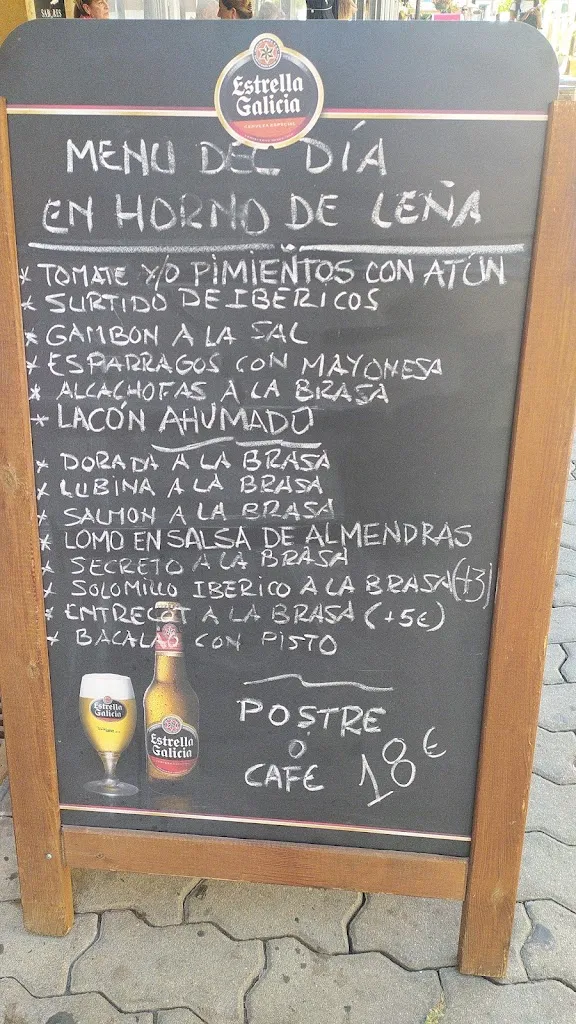 SABORES
Estrella
Galicia
CERVEZA ESPECIAL
MENU DEL DÍA
EN HORNO DE LEÑA
* TOMATE Y/O PIMIENTOS CON ATÚN
* SURTIDO DE IBERICOS
* GAMBON A LA SAL
* ESPARRAGOS CON MAYONESA
* ALCACHOFAS A LA BRASA
* LACÓN AHUMADO
* DORADA A LA BRASA
* LUBINA A LA BRASA
* SALMON A LA BRASA
* LOMO EN SALSA DE ALMENDRAS
* SECRETO A LA BRASA
* SOLOMILLO IBERICO A LA BRASA (+3)
* ENTRECOT A LA BRASA (+5€)
* BACALAO CON PISTO
Estrella
Galicia
Estrella
Galicia
POSTRE
O
CAFE 18€